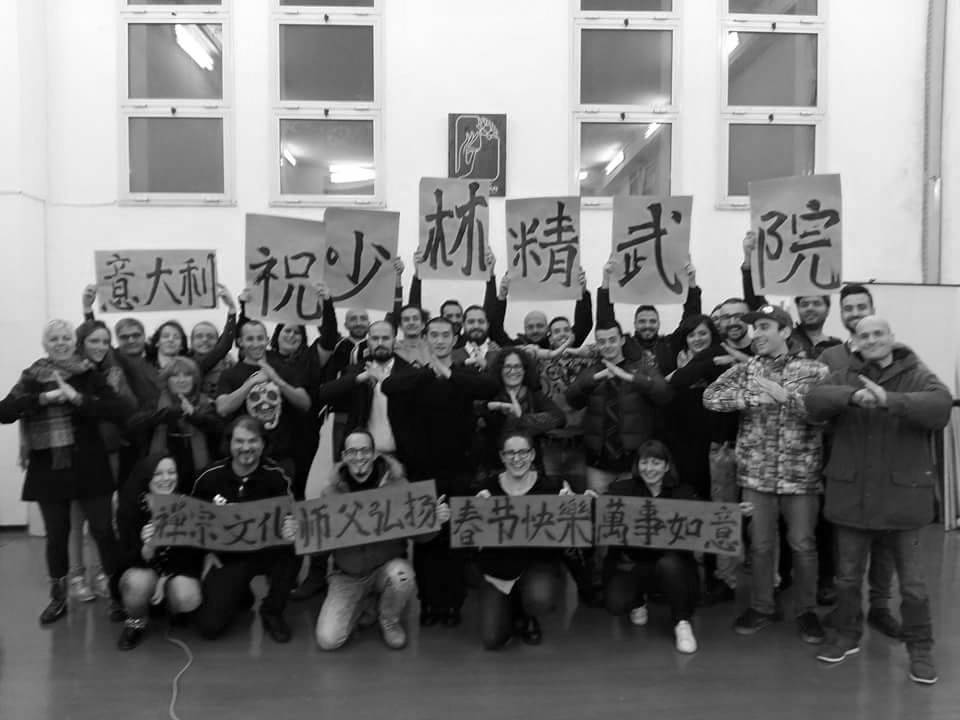 意大利 祝 少 林 精 武 院
禅宗文化 师父弘扬 春节快樂 萬事如意